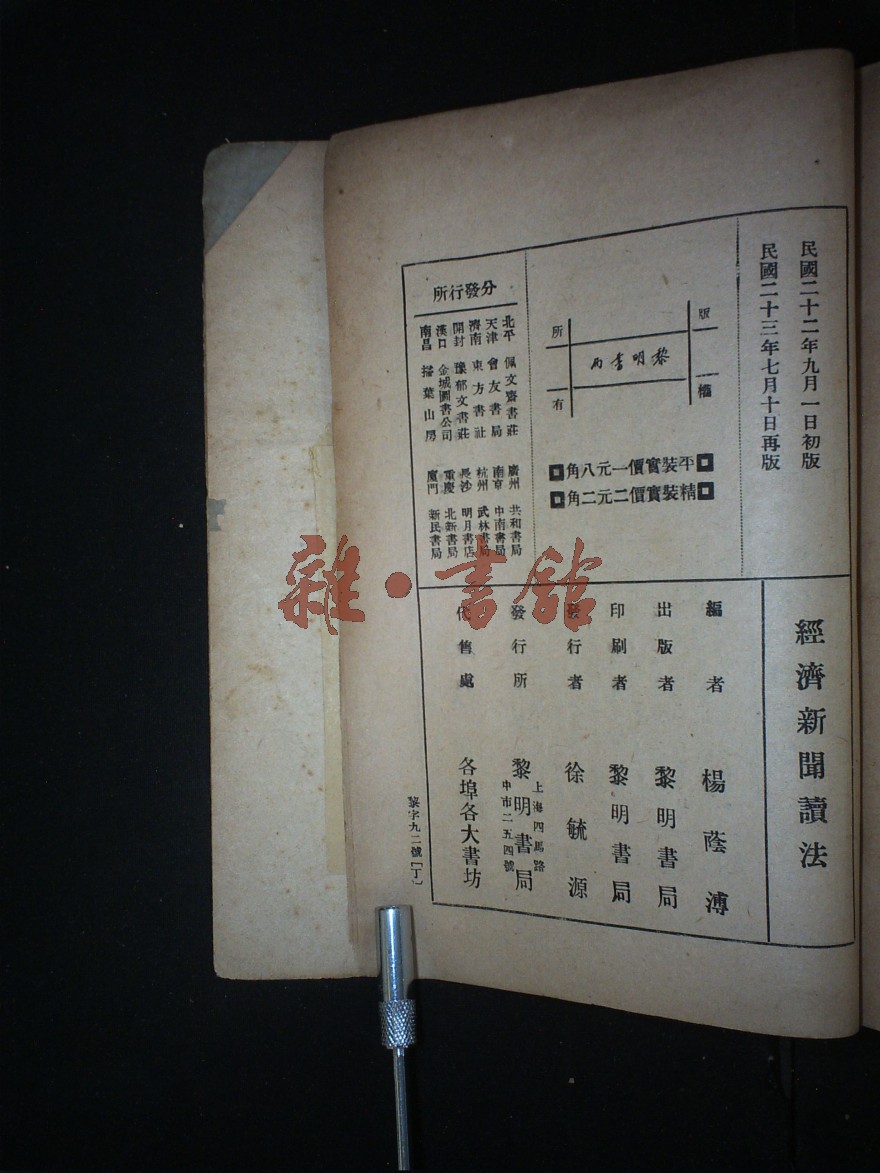 民國二十二年九月一日初版
民國二十三年七月十日再版
版權
所有
黎明書局
平裝實價一元八角
精裝實價二元二角
分發行所
北平 佩文齋書莊
天津 會友書局
濟南 東方書社
開封 豫郁文書莊
漢口 金城圖書公司
南昌 掃葉山房
廣州 共和書局
南京 中南書局
杭州 武林書局
長沙 明月書店
重慶 北新書局
廈門 新民書局
經濟新聞讀法
編者 楊蔭溥
出版者 黎明書局
印刷者 黎明書局
發行者 徐毓源
發行所 黎明書局
上海四馬路
中市二五四號
代售處 各埠各大書坊
黎字九二號〔丁〕
雜·書館